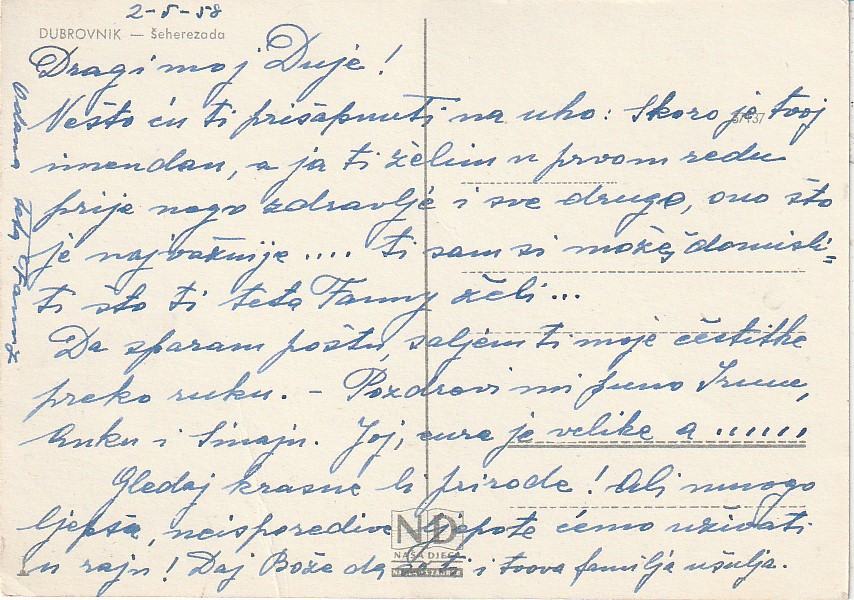 2-5-58
DUBROVNIK — Šeherezada
Dragi moj Duje!
Nešto ću ti prišapnuti na uho: Skoro je tvoj
imendan, a ja ti želim u prvom redu
prije nego zdravlje i sve drugo, ono što
je najvažnije .... ti sam si možeš domisli=
ti što ti teta Fanny želi...
Da sparam poštu, saljem ti moje čestitke
preko ruku. - Pozdravi mi puno
Anku i Sinaju. Joj, cura je velike a ......
Gledaj krasne li prirode! Ali mnogo
ljepše, neisporedive ljepote ćemo uživati
u raju! Daj Bože da se ti i tvova familja ušulja.
Odana teta Fanny
ND
NAŠA DJECA